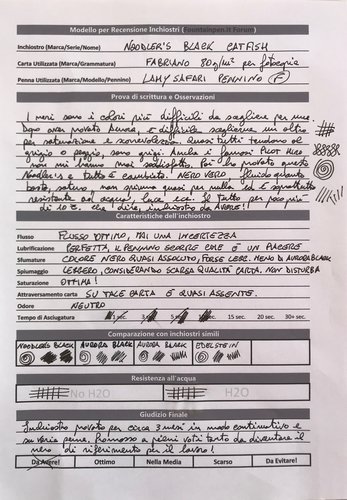 Modello per Recensione Inchiostri (Fountainpen.it Forum)
Inchiostro (Marca/Serie/Nome) NOODLER'S BLACK CATFISH
Carta Utilizzata (Marca/Grammatura) FABRIANO 80g/m² per fotocopia
Penna Utilizzata (Marca/Modello/Pennino) LAMY SAFARI PENNINO F
Prova di scrittura e Osservazioni
I neri sono i colori più difficili da scegliere per me.
Dopo aver provato Aurora, è difficile sceglierne un altro
per saturazione e scorrevolezza. Quasi tutti tendono al
grigio o peggio, sono grigi. Anche i famosi Pilot
non mi hanno mai soddisfatto. Poi ho provato questo
Noodler's e tutto è cambiato. NERO VERO, fluido quanto
basta, saturo, non spiuma quasi per nulla ed è soprattutto
resistente ad acqua, luce ecc. Il tutto per poco più
di 10 €. Che dire, inchiostro da AVERE!!
Caratteristiche dell'inchiostro
Flusso FLUSSO OTTIMO, MAI UNA INCERTEZZA
Lubrificazione PERFETTA, IL PENNINO SCORRE CHE È UN PIACERE
Sfumature COLORE NERO QUASI ASSOLUTO, FORSE LEGG. MENO DI AURORA BLACK
Spiumaggio LEGGERO, CONSIDERANDO SCARSA QUALITÀ CARTA. NON DISTURBA
Saturazione OTTIMA!
Attraversamento carta SU TALE CARTA È QUASI ASSENTE.
Odore NEUTRO
Tempo di Asciugatura 1 sec. 3 5 sec. 15 sec. 20 sec. 30+ sec.
Comparazione con inchiostri simili
NOODLER'S BLACK AURORA BLACK AURORA BLACK EDELSTEIN
Resistenza all'acqua
No H2O H2O
Giudizio Finale
Inchiostro provato per circa 3 mesi in modo continuativo e
su varie penne, promosso a pieni voti tanto da diventare il
nero di riferimento per il lavoro!
Da Avere! Ottimo Nella Media Scarso Da Evitare!